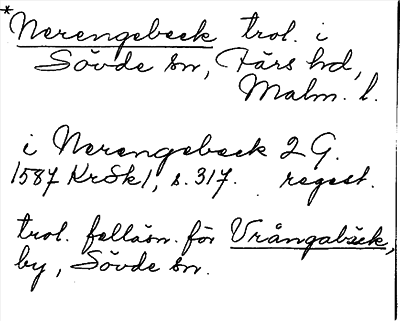 *Nerengebeck trol. i
Sövde sn, Färs hd,
Malm. l.
i Nerengebeck 2 G.
1587 KrSk1, s. 317. regest.
trol. felläsn. för Vrångabäck,
by, Sövde sn.